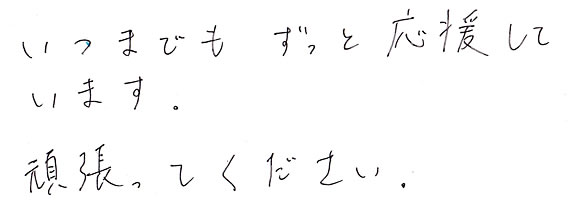 いつまでも ずっと 応援して
います。
頑張ってください.